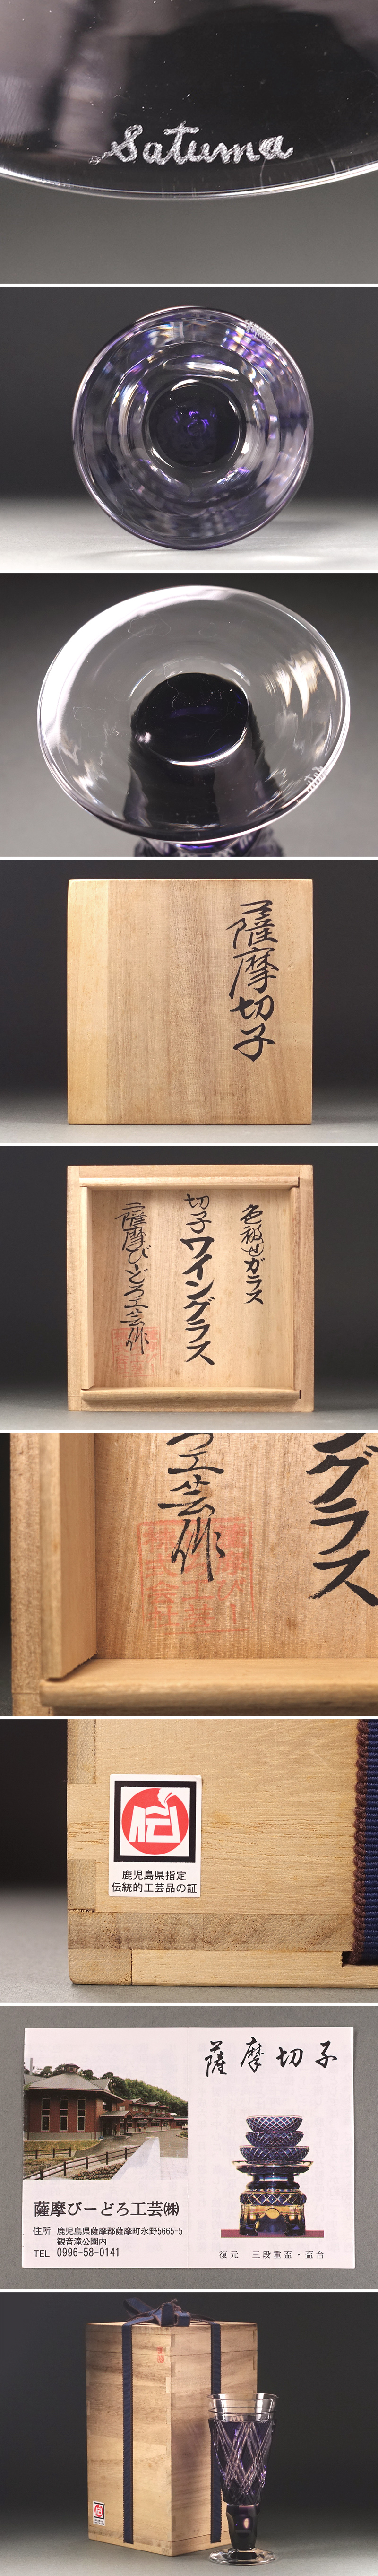 Satuma
薩摩切子
色被せガラス
切子ワイングラス
薩摩びーどろ工芸作
ろ工芸作
グラス
伝
鹿児島県指定
伝統的工芸品の証
薩摩切子
薩摩びーどろ工芸㈱
住所 鹿児島県薩摩郡薩摩町永野5665-5
観音滝公園内
TEL 0996-58-0141
復元 三段重盃・盃台